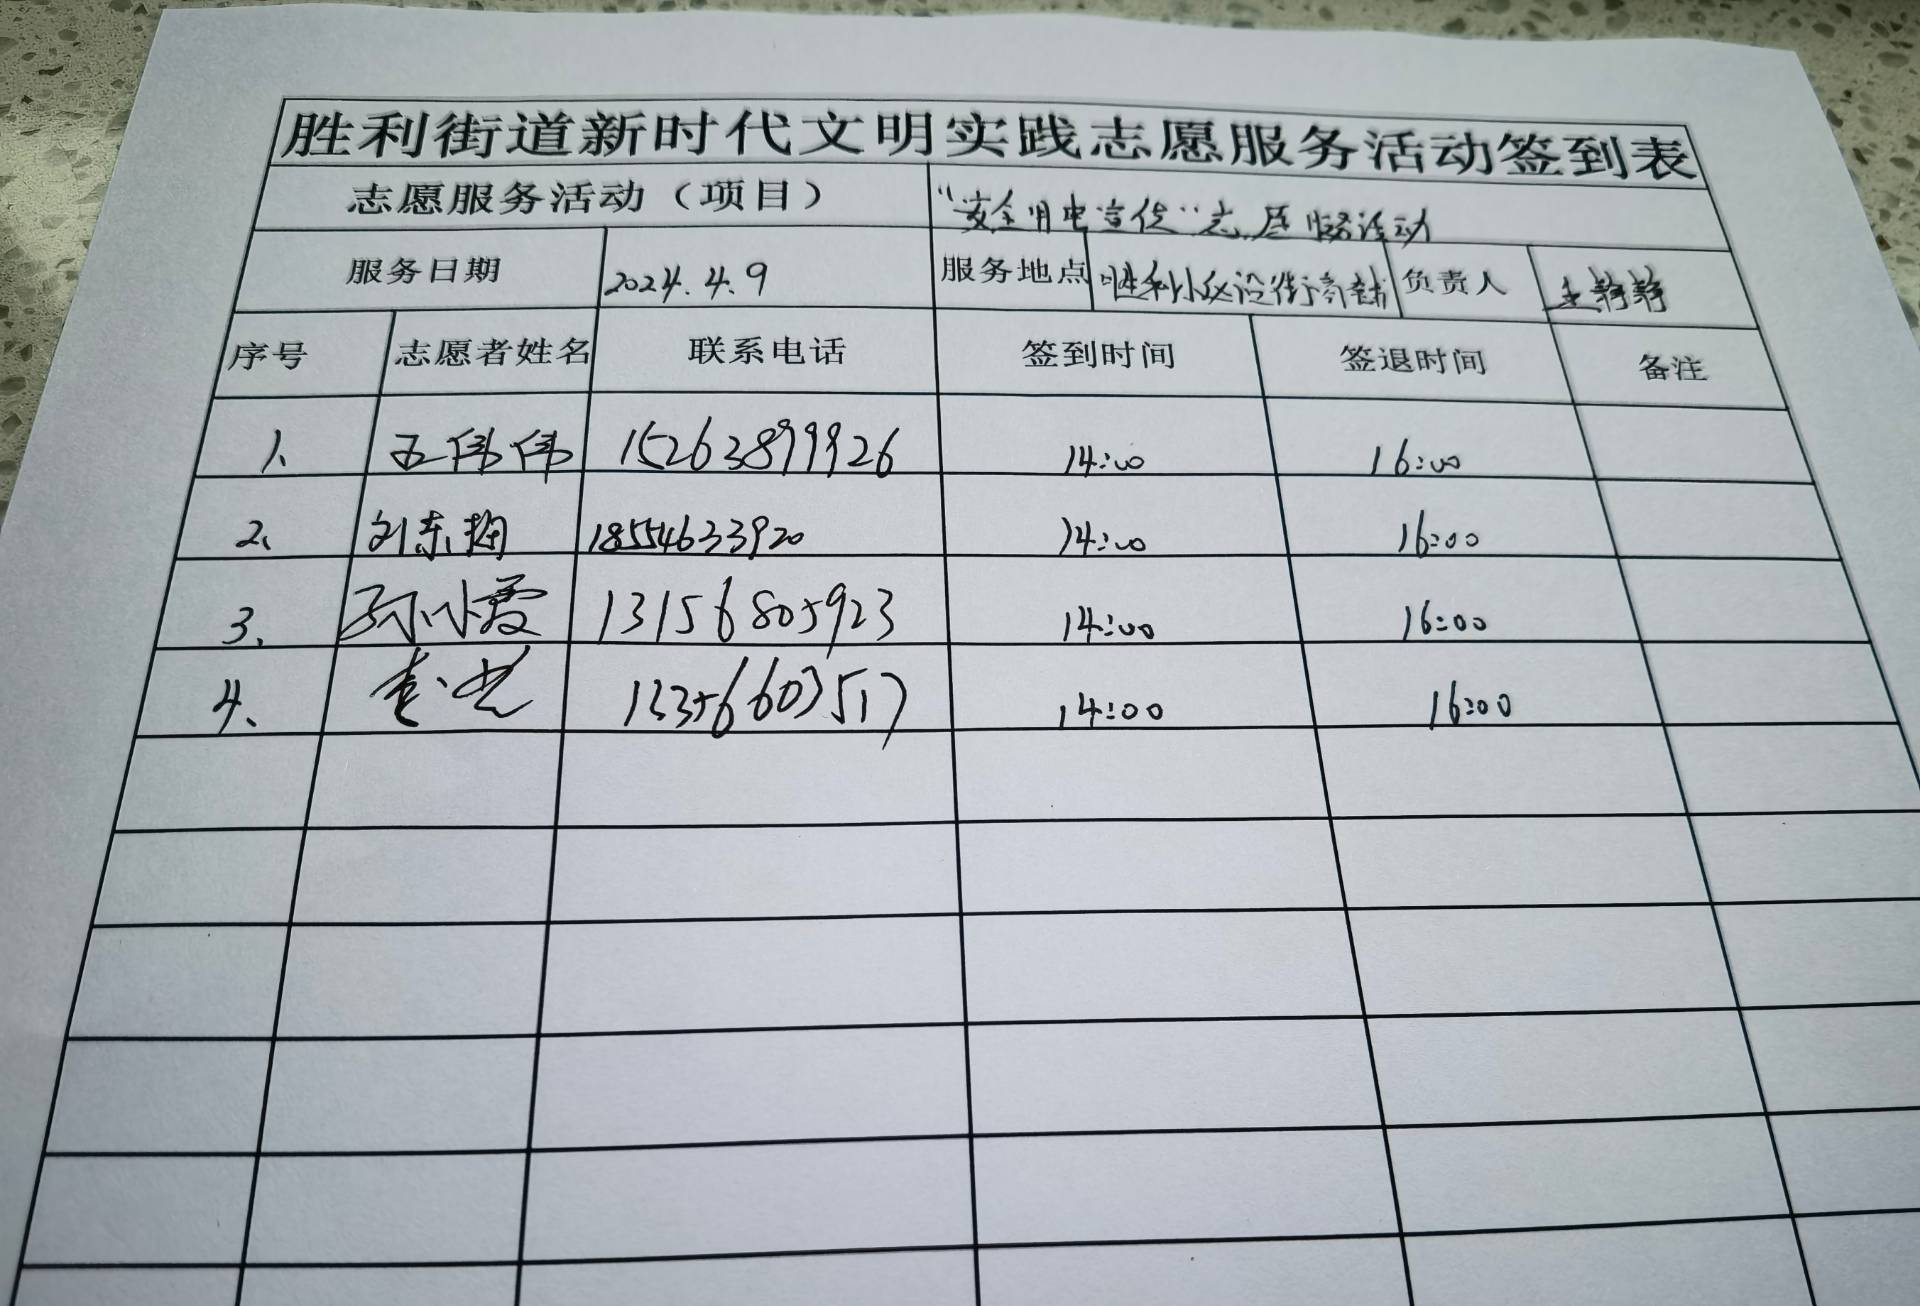 胜利街道新时代文明实践志愿服务活动签到表
志愿服务活动（项目） “安全用电宣传”志愿服务活动
服务日期 2024.4.9 服务地点 胜利小区沿街商铺 负责人 王静静
序号 志愿者姓名 联系电话 签到时间 签退时间 备注
1、 王伟伟 15263899926 14:00 16:00
2、 刘东梅 18554633920 14:00 16:00
3、 孙小霞 13156805923 14:00 16:00
4、 13356603517 14:00 16:00